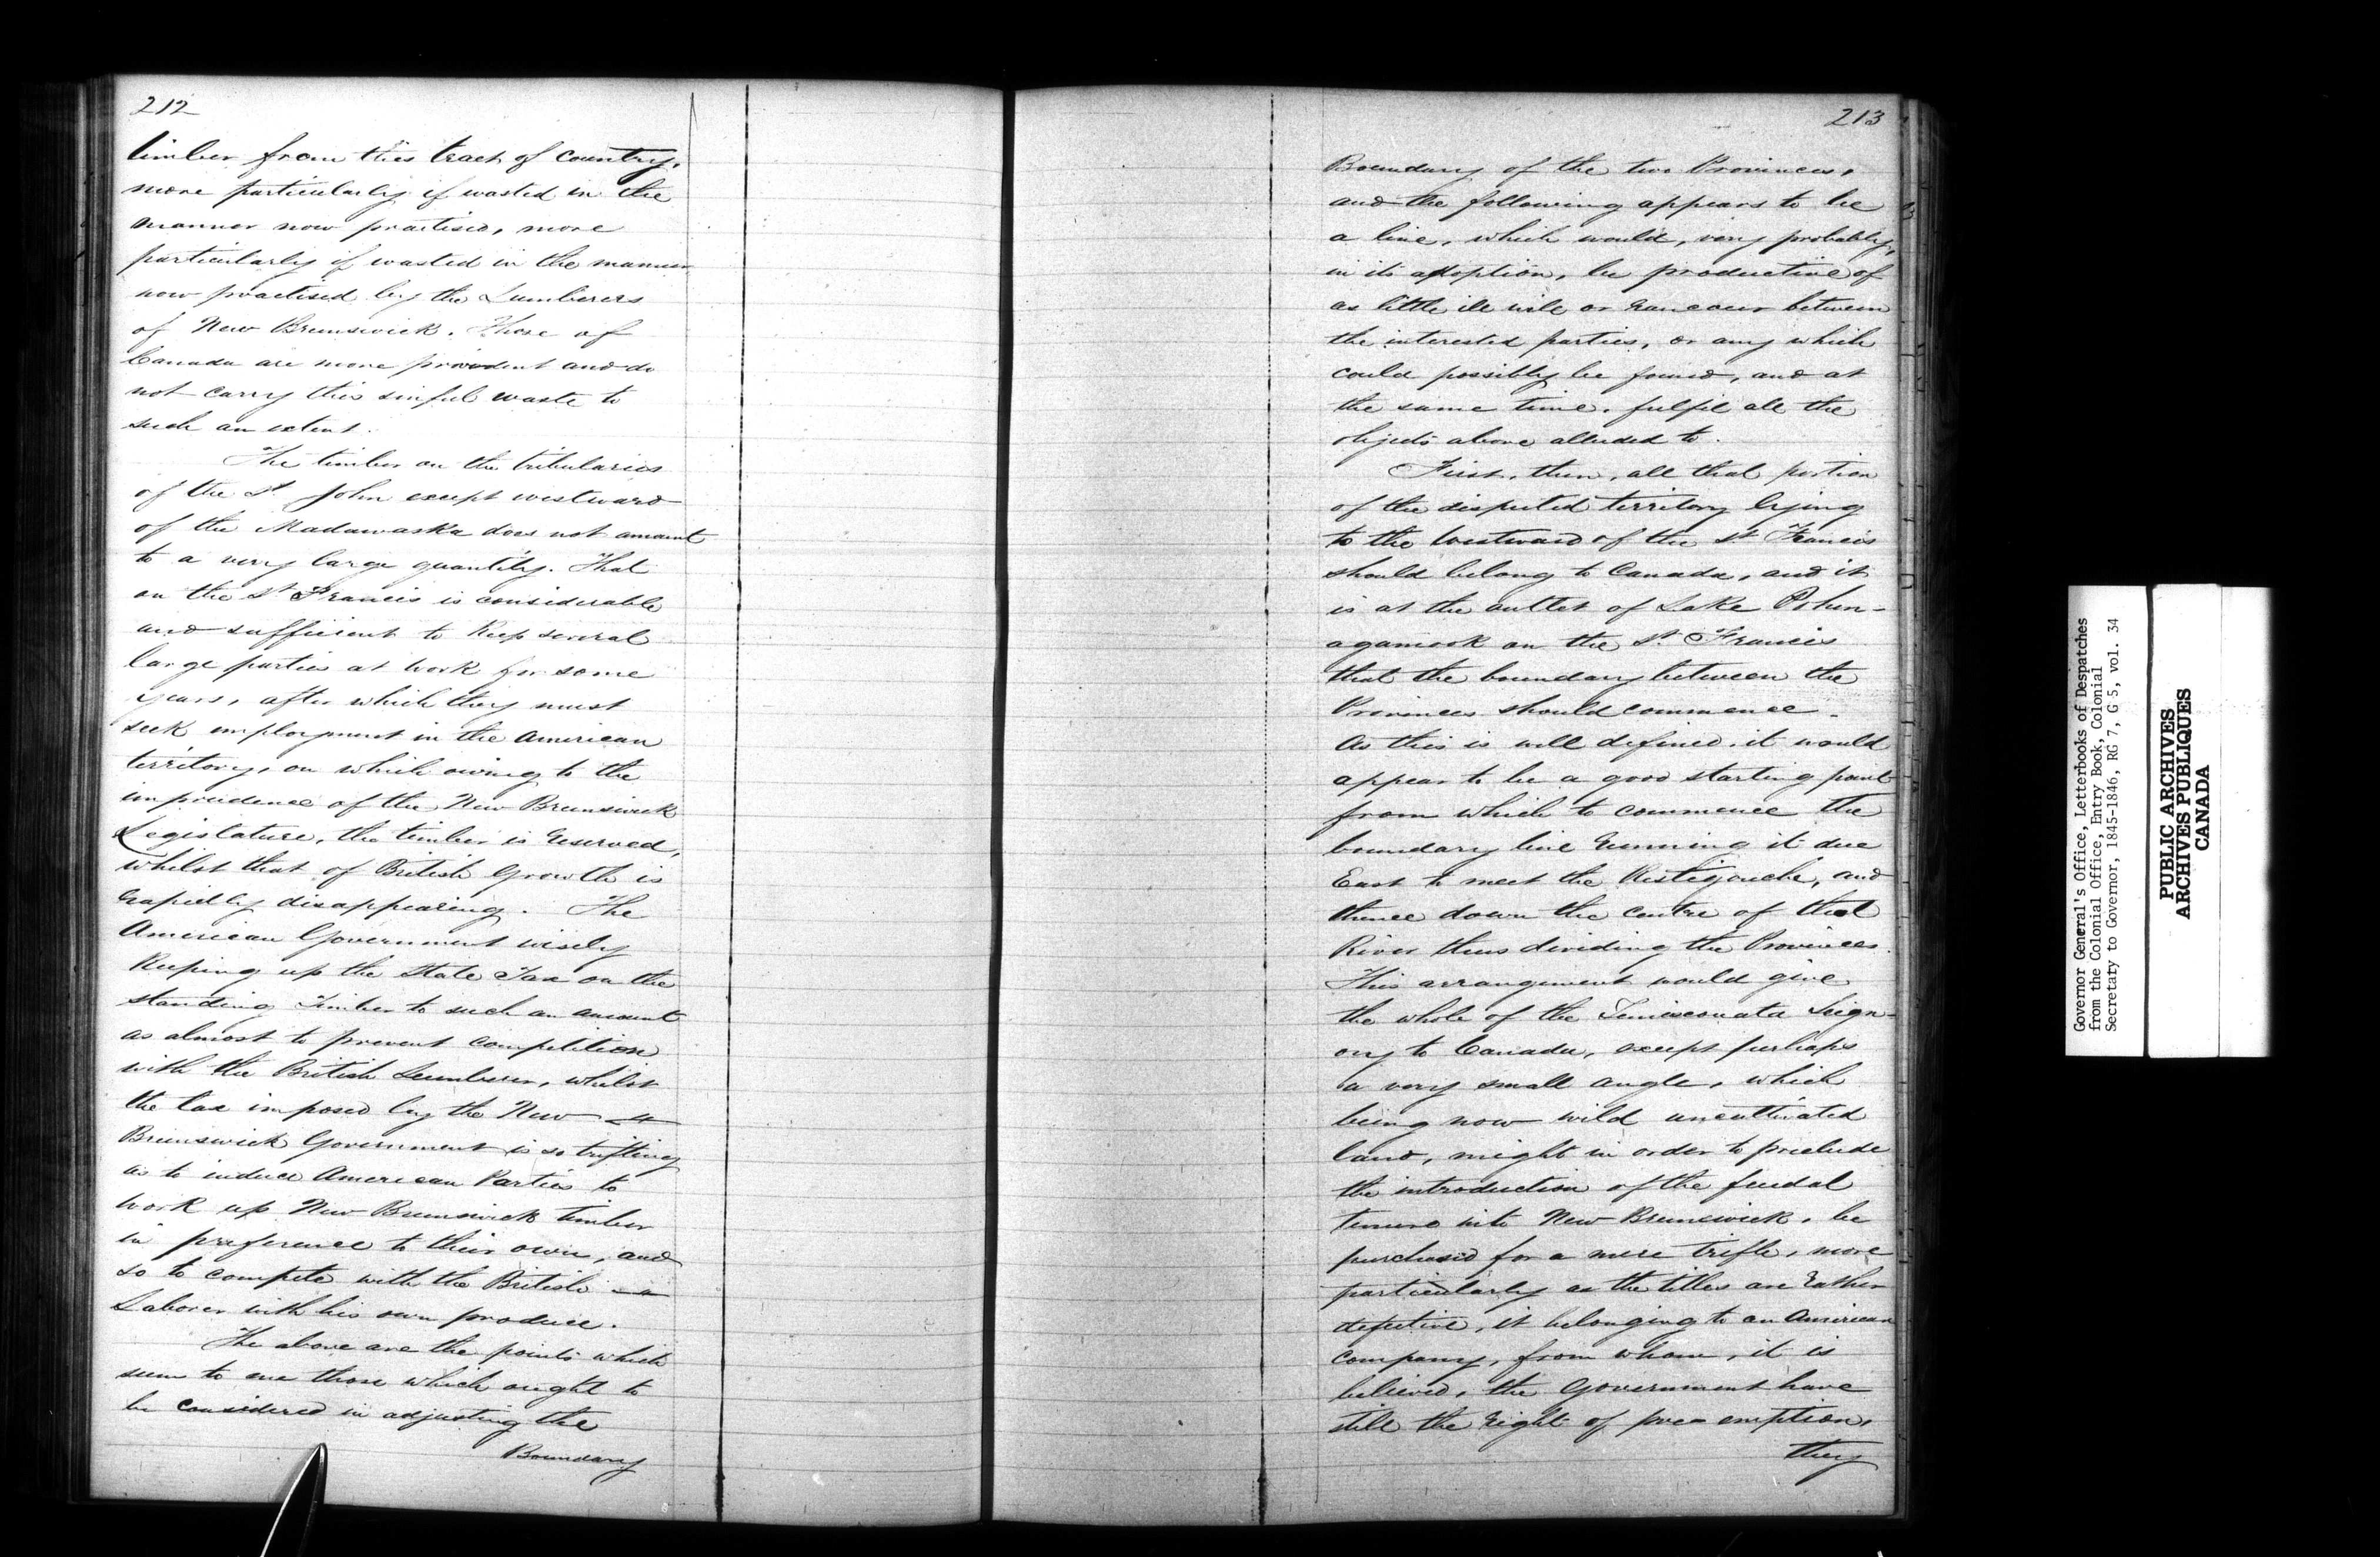 212
timber from this tract of country,
more particularly if wasted in the
manner now practised, more
particularly if wasted in the manner
now practised by the Lumberers
of New Brunswick. Those of
Canada are more provident and do
not carry this sinful waste to
such an extent.
The timber on the tributaries
of the St John except westward
of the Madawaska does not amount
to a very large quantity. That
on the St Francis is considerable
and sufficient to keep several
large parties at work for some
years, after which they must
seek employment in the American
territory, on which owing to the
imprudence of the New Brunswick
Legislature, the timber is reserved,
whilst that of British Growth is
rapidly disappearing. The
American Government wisely
keeping up the State Tax on the
standing Timber to such an amount
as almost to prevent competition
with the British Lumberer, whilst
the tax imposed by the New
Brunswick Government is so trifling
as to induce American Parties to
work up New Brunswick timber
in preference to their own, and
so to compete with the British
Laborer with his own produce.
The above are the points which
seem to me those which ought to
be considered in adjusting the
Boundary
213
Boundary of the two Provinces,
and the following appears to be
a line, which would, very probably,
in its adoption, be productive of
as little ill will or rancour between
the interested parties, or any which
could possibly be found, and at
the same time, fulfil all the
objects above alluded to.
First, then, all that portion
of the disputed territory lying
to the Westward of the St Francis
should belong to Canada, and it
is at the outlet of Lake Pohen-
agamook on the St Francis
that the boundary between the
Provinces should commence.
As this is well defined, it would
appear to be a good starting point
from which to commence the
boundary line running it due
East to meet the Restigouche, and
thence down the centre of that
River thus dividing the Provinces.
This arrangement would give
the whole of the Temisconata Seign-
ory to Canada, except perhaps
a very small angle, which
being now wild uncultivated
land, might in order to preclude
the introduction of the feudal
tenure into New Brunswick, be
purchased for a mere trifle, more
particularly as the titles are rather
defective, it belonging to an American
company, from whom, it is
believed, the Government have
still the right of pre-emption,
they
Governor General's Office, Letterbooks of Despatches
from the Colonial Office, Entry Book, Colonial
Secretary to Governor, 1845-1846, RG 7, G 5, vol. 34
PUBLIC ARCHIVES
ARCHIVES PUBLIQUES
CANADA